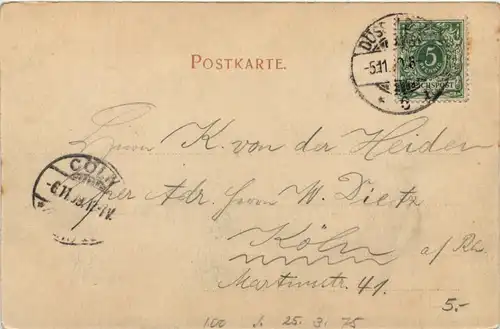 POSTKARTE.
DÜSS
-5.11.
5
Herrn K. von der Heiden
CÖLN
-6.11.
per Adr. Herrn W. Dietz
Köln a/Rh.
Martinstr. 41.
5.-
100 25. 3. 75